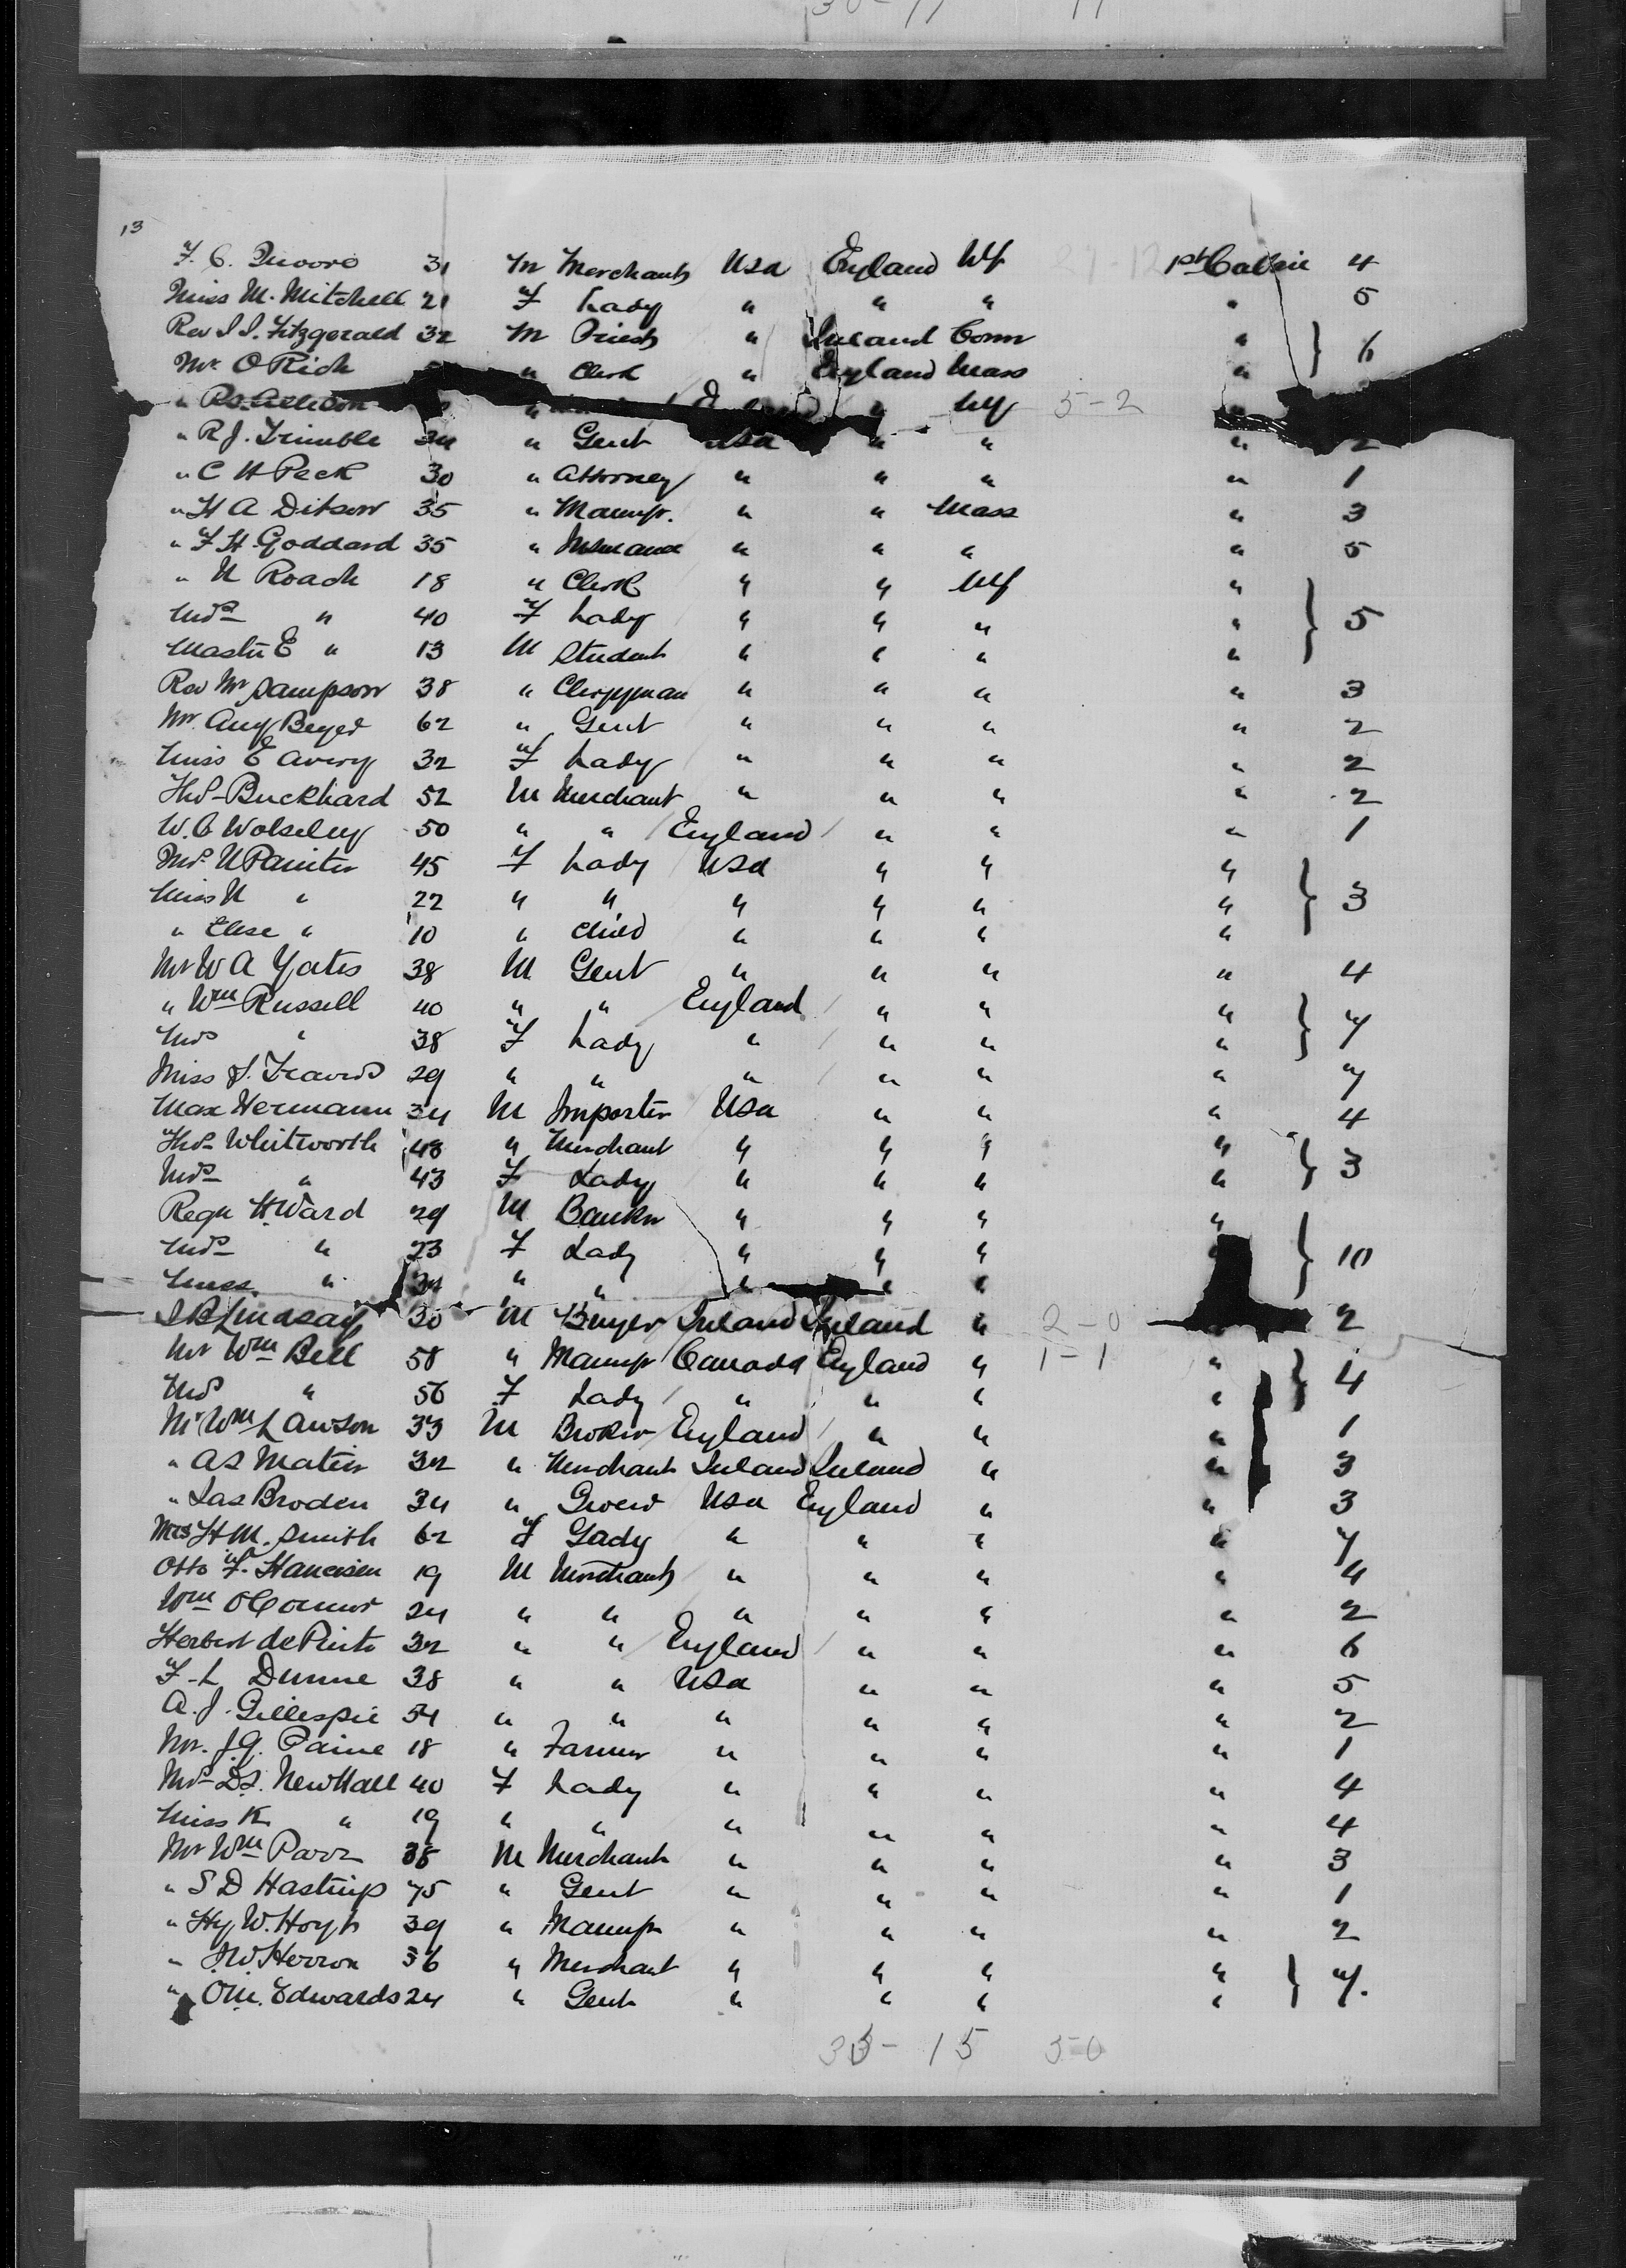 13
F. C. Moore 31 M Merchant Usa England NY 1st Cabin 4
Miss M. Mitchell 21 F Lady " " " " 5
Rev J. J. Fitzgerald 32 M Priest " Ireland Conn " } 6
Mr O Rich " Clerk " England Mass "
" " " NY 5-2 "
" R J. Trimble 34 " Gent Usa " " " 2
" C H Peck 30 " Attorney " " " " 1
" H A Ditson 35 " Manufr. " " Mass " 3
" F H Goddard 35 " Insurance " " " " 5
" N Roach 18 " Clerk " " NY "
Mrs " 40 F Lady " " " " } 5
Master E " 13 M Student " " " "
Rev Mr Sampson 38 " Clergyman " " " " 3
Mr Aug Beyer 62 " Gent " " " " 2
Miss E Avery 32 F Lady " " " " 2
Thos Buckhard 52 M Merchant " " " " 2
W. C Wolseley 50 " " England " " " 1
Mrs N Painter 45 F Lady Usa " " "
Miss N " 22 " " " " " " } 3
" Elise " 10 " Child " " " "
Mr W A Yates 38 M Gent " " " " 4
" Wm Russell 40 " " England " " " } 7
Mrs " 38 F Lady " " " "
Miss J. Travers 29 " " " " " " 7
Max Hermann 34 M Importer Usa " " " 4
Thos Whitworth 48 " Merchant " " " " } 3
Mrs " 43 F Lady " " " "
Regn H. Ward 29 M Banker " " " "
Mrs " 23 F Lady " " " " } 10
Miss " 34 " " " " "
J B Lindsay 30 M Buyer Ireland Ireland " 2-0 " 2
Mr Wm Bell 58 " Manufr Canada England " 1-1 " } 4
Mrs " 56 F Lady " " " "
Mr Wm Lawson 33 M Broker England " " " 1
" A S Mater 32 " Merchant Ireland Ireland " " 3
" Jas Broden 34 " Grocer Usa England " " 3
Mrs H. M. Smith 62 F Lady " " " " 7
Otto F. Hancisen 19 M Merchant " " " " 4
Wm O'Connor 24 " " " " " " 2
Herbert de Pinto 32 " " England " " " 6
F. L Dunne 38 " " Usa " " " 5
A. J. Gillespie 54 " " " " " " 2
Mr. J. G. Paine 18 " Farmer " " " " 1
Mrs D. S. Newhall 40 F Lady " " " " 4
Miss K " 19 " " " " " " 4
Mr Wm Parr 35 M Merchant " " " " 3
" S D Hastings 75 " Gent " " " " 1
" Hy W. Hoyt 39 " Manufr " " " " 2
" J. W. Herron 36 " Merchant " " " " } 7.
" O M. Edwards 24 " Gent " " " "
33-15 5-0